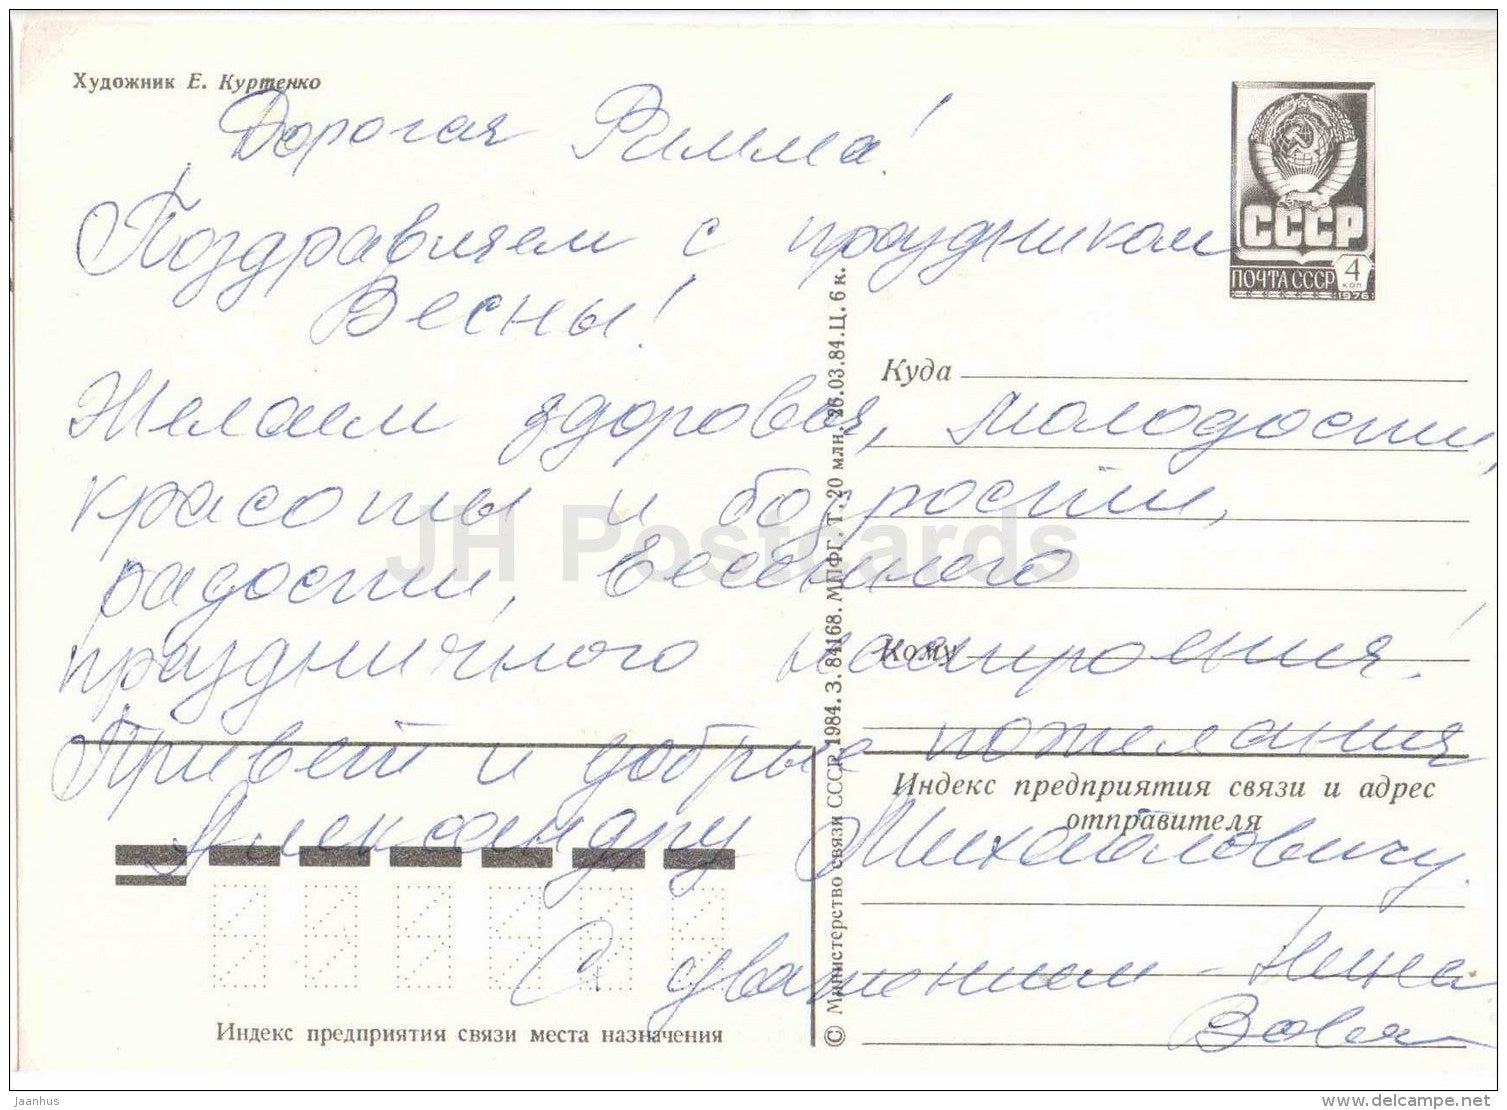 Художник Е. Куртенко
Дорогая Римма!
Поздравляем с праздником
Весны!
Желаем здоровья, молодости,
красоты и бодрости,
радости, весеннего
праздничного настроения!
Привет и добрые пожелания
Александру Михайловичу.
С уважением - Нина
Вова
СССР
ПОЧТА СССР 4
КОП
1976
Куда
Кому
Индекс предприятия связи и адрес
отправителя
Индекс предприятия связи места назначения
© Министерство связи СССР, 1984. З. 84168. МПФГ. Т. 20 млн. 26.03.84. Ц. 6 к.
JH Postcards
Jaanhus
http://www.delcampe.net